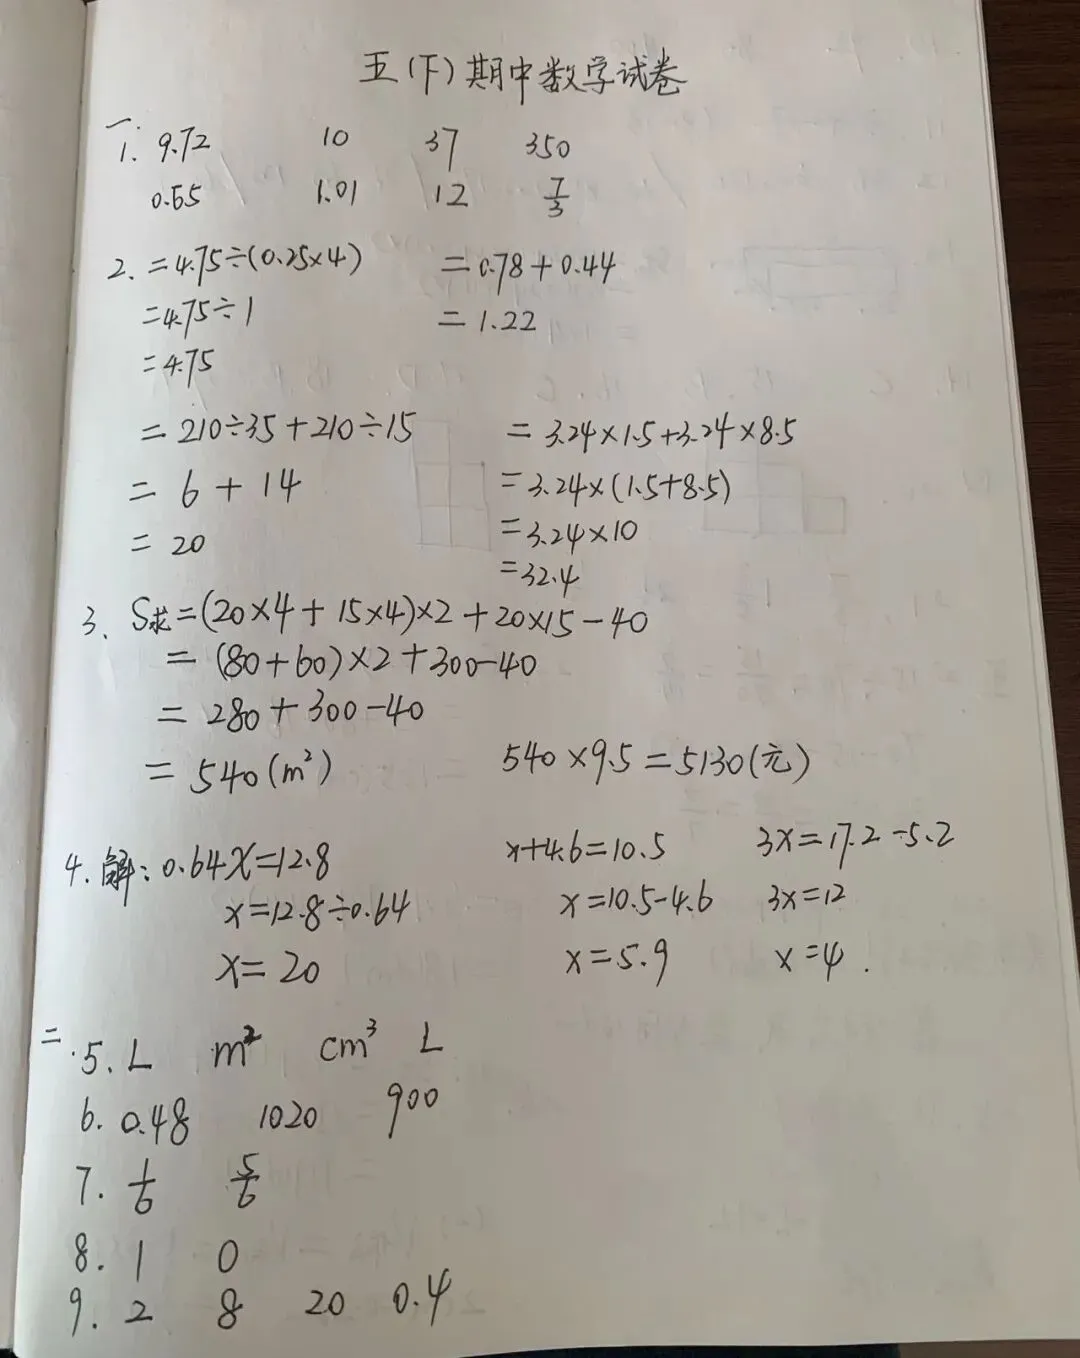 五(下)期中数学试卷
一.
1. 9.72 10 37 350
0.55 1.01 12 7/3
2. =4.75÷(0.25×4) =0.78+0.44
=4.75÷1 =1.22
=4.75
=210÷35+210÷15 =3.24×1.5+3.24×8.5
=6+14 =3.24×(1.5+8.5)
=20 =3.24×10
=32.4
3、S求=(20×4+15×4)×2+20×15-40
=(80+60)×2+300-40
=280+300-40
=540(m²) 540×9.5=5130(元)
4.解:0.64X=12.8 x+4.6=10.5 3x=17.2-5.2
x=12.8÷0.64 x=10.5-4.6 3x=12
x=20 x=5.9 x=4.
二.5. L m² cm³ L
6. 0.48 1020 900
7. 1/6 5/6
8. 1 0
9. 2 8 20 0.4